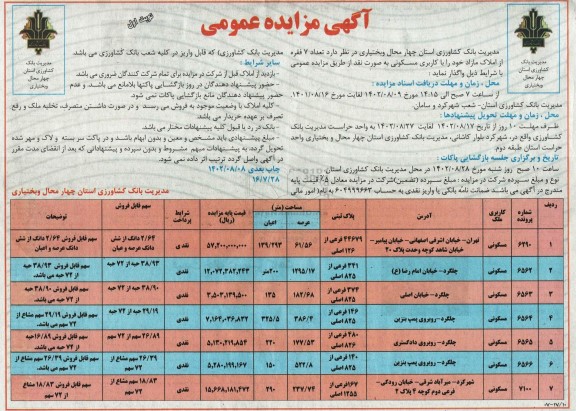 آگهی مزایده عمومی
نوبت اول
مدیریت بانک کشاورزی استان چهار محال وبختیاری
مدیریت بانک کشاورزی استان چهار محال وبختیاری
مدیریت بانک کشاورزی استان چهار محال وبختیاری در نظر دارد تعداد ۷ فقره
از املاک مازاد خود را با کاربری مسکونی به صورت نقد از طریق مزایده عمومی
با شرایط ذیل واگذار نماید :
محل ، زمان و مهلت دریافت اسناد مزایده :
از ساعت ۷ صبح الی ۱۴:۱۵ مورخ ۱۴۰۲/۰۸/۰۹ لغایت مورخ ۱۴۰۲/۰۸/۱۶
مدیریت بانک کشاورزی استان- شعب شهرکرد و سامان
محل ، زمان و مهلت تحویل پیشنهادها :
ظرف مهلت ۱۰ روز از تاریخ ۱۴۰۲/۰۸/۱۷ لغایت ۱۴۰۲/۰۸/۲۷ به واحد حراست مدیریت بانک
کشاورزی واقع در، شهرکرد،بلوار کاشانی، مدیریت بانک کشاورزی استان چهارمحال وبختیاری واحد
حراست استان طبقه دوم.
تاریخ و برگزاری جلسه بازگشایی پاکات :
ساعت ۱۰ صبح روز شنبه مورخ ۱۴۰۲/۰۸/۲۸ در محل مدیریت بانک کشاورزی استان.
نوع و مبلغ سپرده شرکت در مزایده : مبلغ سپرده (تضمین)شرکت در مزایده معادل ۵٪ قیمت پایه
مندرج در آگهی می باشند ضمانت نامه بانکی یا واریز نقدی به حساب ۶۰۴۹۹۹۶۶۳ به نام( امور مالی
مدیریت بانک کشاورزی) که قابل واریز در کلیه شعب بانک کشاورزی می باشد.
سایر شرایط :
-بازدید از املاک قبل از شرکت در مزایده برای تمام شرکت کنندگان ضروری می باشد
حضور پیشنهاد دهندگان در روز بازگشایی پاکتها بلامانع می باشد، و عدم
حضور پیشنهاد دهندگان مانع بازگشایی پاکات نمی شود.
-کلیه املاک با وضعیت موجود به فروش می رسند و در صورت داشتن متصرف، تخلیه ملک و رفع
تصرف بر عهده خریدار می باشد.
-بانک در رد یا قبول کلیه پیشنهادات مختار می باشد.
- مبلغ پیشنهادی باید مشخص و معین و بدون ابهام باشد و در پاکت سر بسته و لاک و مهر شده
تحویل گردد، به پیشنهادات مبهم، مشروط و بدون سپرده و پیشنهاداتی که بعد از انقضای مدت مقرر
در آگهی واصل گردد ترتیب اثر داده نمی شود.
چاپ بعدی ۱۴۰۲/۰۸/۰۸
۱۶/۷/۲۸
مدیریت بانک کشاورزی استان چهار محال وبختیاری
ردیف شماره پرونده کاربری ملک آدرس پلاک ثبتی مساحت (متر) عرصه اعیان قیمت پایه مزایده (ریال) شرایط پرداخت سهم قابل فروش توضیحات
۱ ۶۲۹۰ مسکونی تهران- خیابان اشرفی اصفهانی – خیابان پیامبر- خیابان شاهد کوچه وحدت پلاک ۲۰ ۴۴۶۷۹ فرعی از ۱۲۶ اصلی ۶۱/۵۶ ۱۳۹/۲۹۳ ۵۷,۲۰۰,۰۰۰,۰۰۰ نقدی ۲/۶۴ دانک از شش دانک عرصه و اعیان سهم قابل فروش ۲/۶۴ دانک از شش دانک عرصه و اعیان
۲ ۶۵۶۲ مسکونی چلگرد- خیابان امام رضا (ع) ۳۴۱ فرعی از ۸۲۵ اصلی ۱۲۹۵/۱۷ ۲۰۰متر ۱۲,۰۷۲,۲۸۲,۲۴۳ نقدی ۳۸/۹۳ حبه از ۷۲ حبه سهم قابل فروش ۳۸/۹۳ حبه از ۷۲ حبه می باشد.
۳ ۶۵۶۳ مسکونی چلگرد- خیابان اصلی ۳۷۴ فرعی از ۸۲۵ اصلی ۱۸۲/۶۸ ۱۳۵ ۳,۵۰۳,۱۳۹,۵۰۰ نقدی ۳۸/۹۰ حبه از ۷۲ حبه سهم قابل فروش ۳۸/۹۰ حبه از ۷۲ حبه می باشد.
۴ ۶۵۶۴ مسکونی چلگرد- روبروی پمپ بنزین ۱۴۶ فرعی از ۸۲۵ اصلی ۳۸۶/۴ ۳۲۵/۵ ۷,۱۶۴,۰۳۶,۸۳۲ نقدی ۲۹/۱۹ حبه از ۷۲ حبه سهم قابل فروش ۲۹/۱۹ سهم مشاع از ۷۲ سهم می باشد.
۵ ۶۵۶۵ مسکونی چلگرد- روبروی دادگستری ۴۸۰ فرعی از ۸۲۵ اصلی ۱۷۷/۵۳ ۲۲۰ ۵,۱۳۰,۴۱۹,۸۵۴ نقدی ۲۶/۸۹ سهم از ۷۲ سهم سهم قابل فروش ۱۶/۸۹حبه از ۷۲ حبه می باشد.
۶ ۶۵۶۶ مسکونی چلگرد- روبروی پمپ بنزین ۱۳۰ فرعی از ۸۲۵ اصلی ۵۲۲/۸ ۱۵۰ ۵,۲۸۰,۱۹۹,۱۶۷ نقدی ۲۶/۳۹ سهم مشاع از ۷۲ سهم سهم قابل فروش ۲۶/۳۹ سهم مشاع از ۷۲ سهم می باشد.
۷ ۷۱۰۰ مسکونی شهرکرد- میرآباد شرقی- خیابان رودکی- فرعی دوم کوچه ۳ پلاک ۲ ۱۶۷فرعی از ۱۲۵۵ اصلی ۳۳۷/۷۴ ۴۹۰ ۱۵,۶۶۸,۱۸۱,۴۷۲ نقدی ۱۸/۸۳ سهم مشاع از ۷۲ سهم سهم قابل فروش ۱۸/۸۳ مشاع از ۷۲ سهم
۰۷-۲۷/۱۰